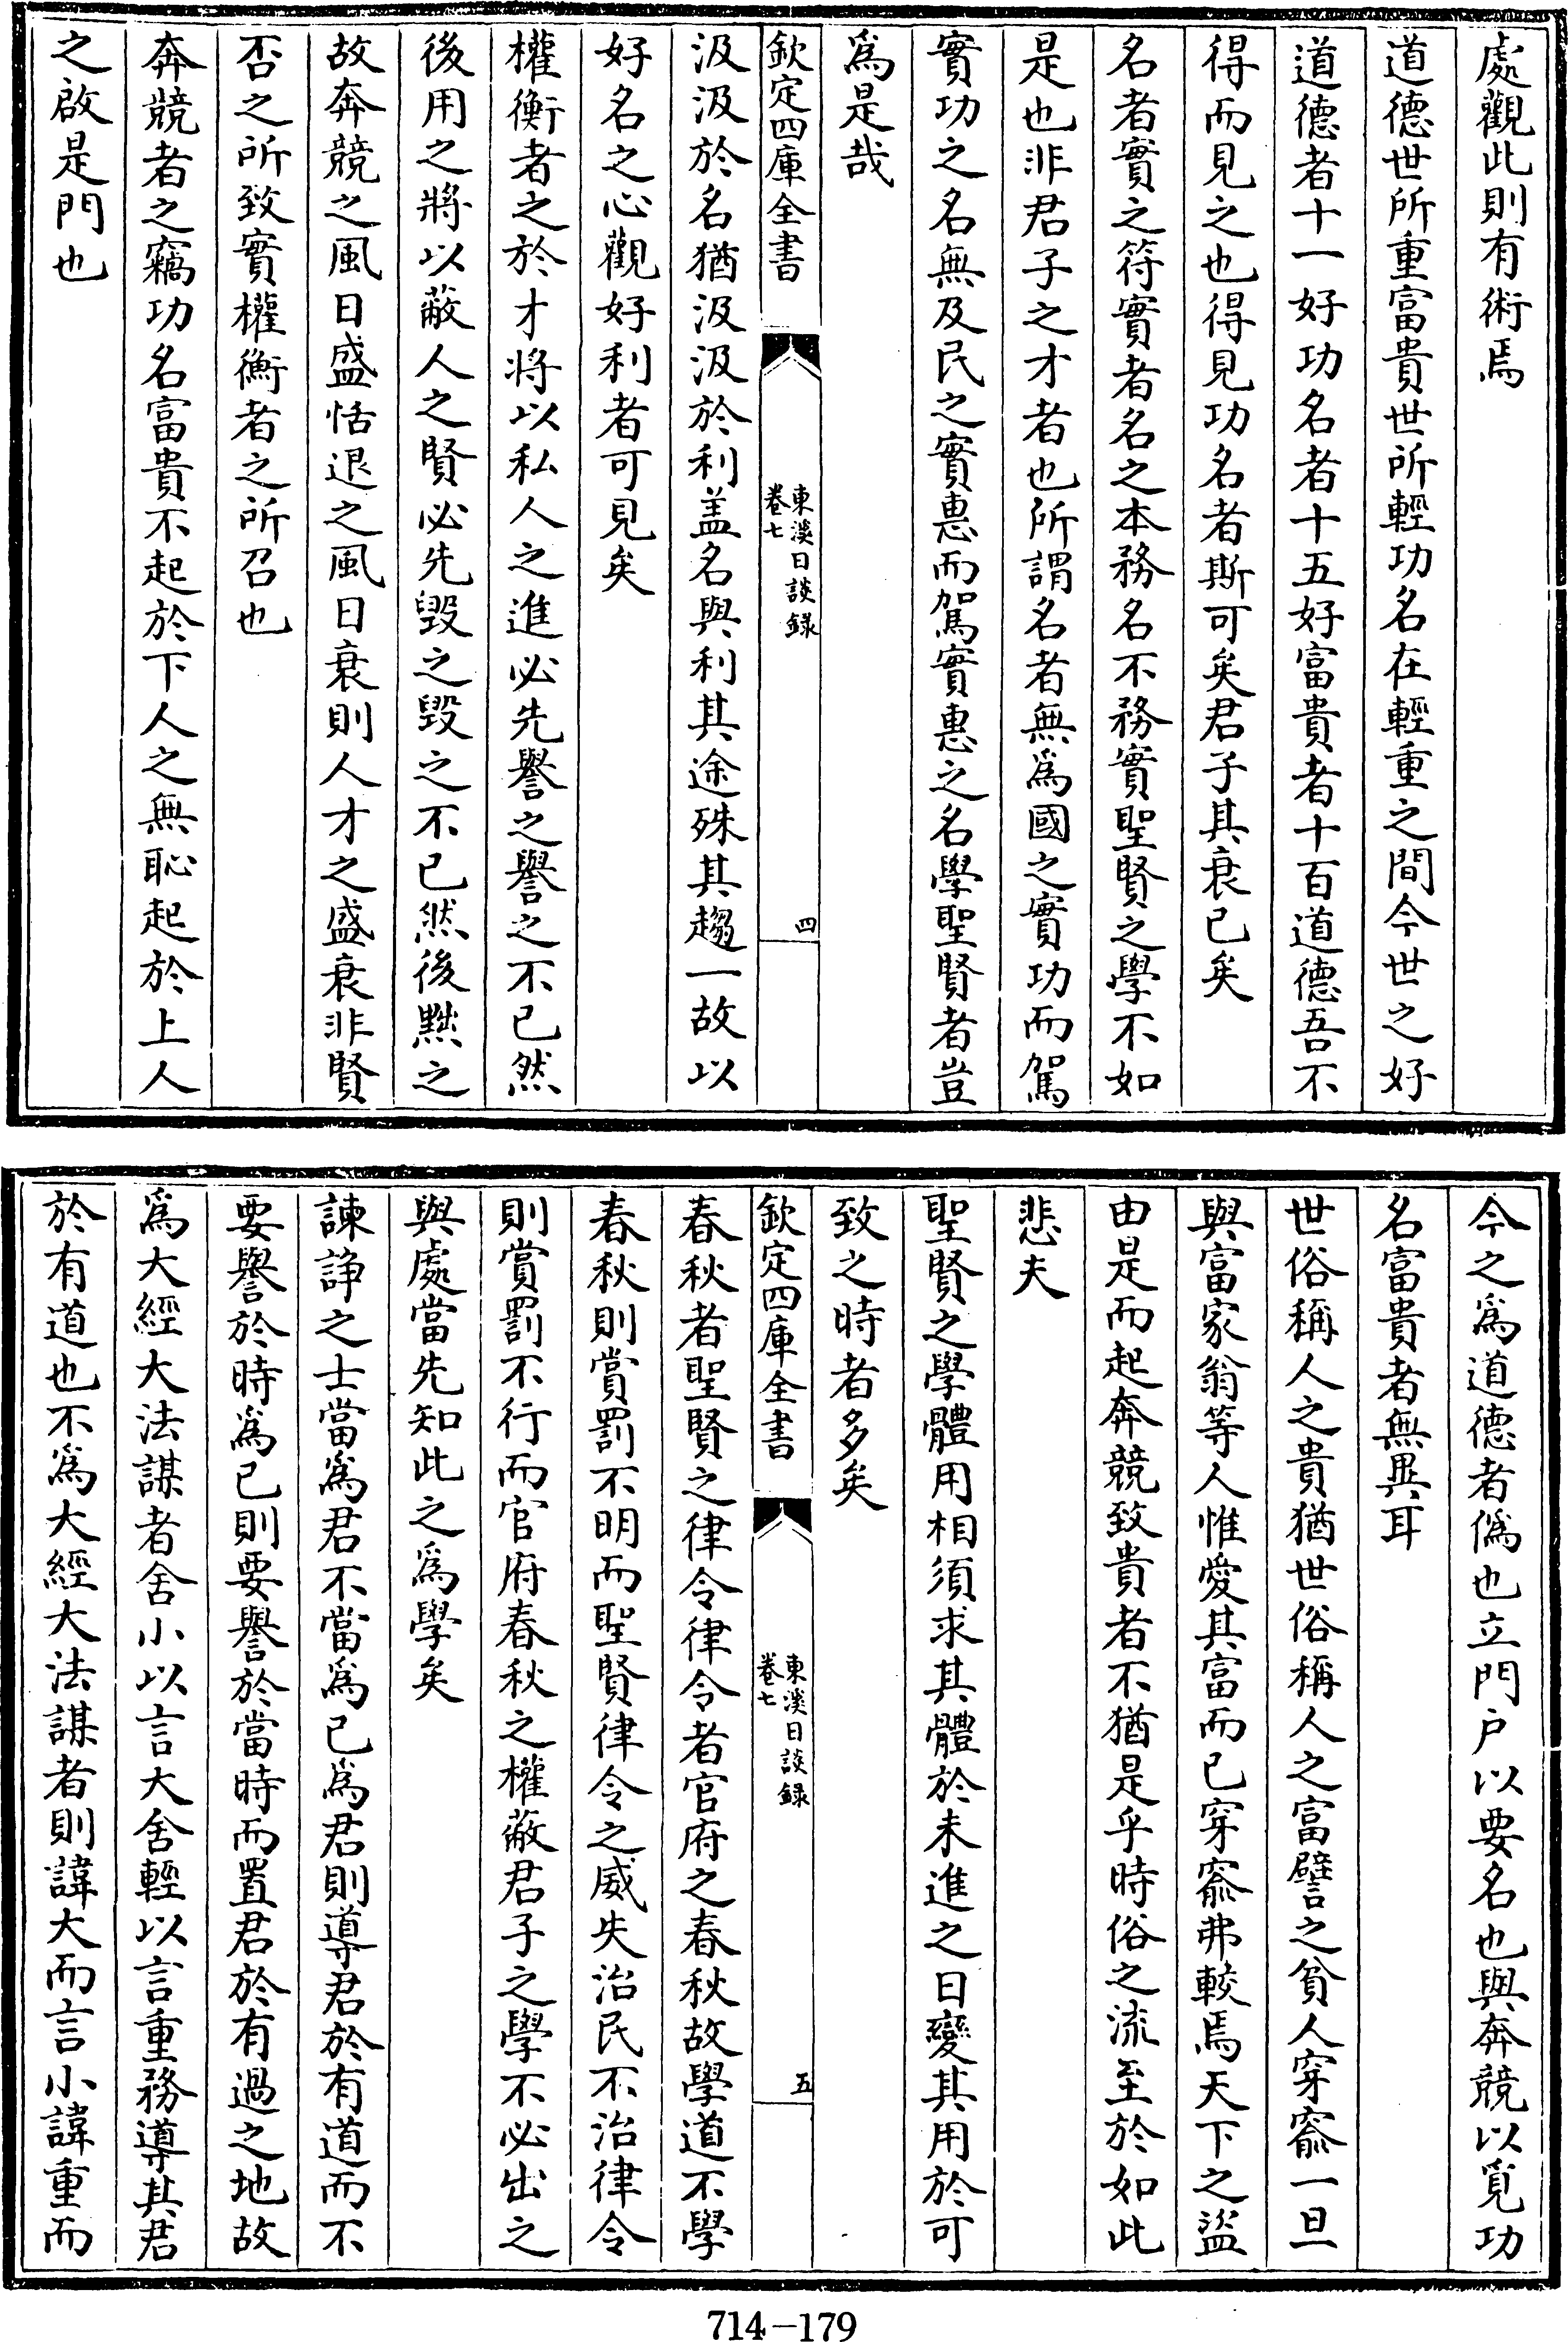 處觀此則有術焉
道德世所重富貴世所輕功名在輕重之間今世之好
道德者十一好功名者十五好富貴者十百道德吾不
得而見之也得見功名者斯可矣君子其衰已矣
名者實之符實者名之本務名不務實聖賢之學不如
是也非君子之才者也所謂名者無為國之實功而駕
實功之名無及民之實惠而駕實惠之名學聖賢者豈
為是哉
欽定四庫全書
東溪日談錄
卷七
四
汲汲於名猶汲汲於利盖名與利其途殊其趨一故以
好名之心觀好利者可見矣
權衡者之於才將以私人之進必先譽之譽之不已然
後用之將以蔽人之賢必先毀之毀之不已然後黜之
故奔競之風日盛恬退之風日衰則人才之盛衰非賢
否之所致實權衡者之所召也
奔競者之竊功名富貴不起於下人之無恥起於上人
之啟是門也
今之為道德者偽也立門戶以要名也與奔競以覓功
名富貴者無異耳
世俗稱人之貴猶世俗稱人之富譬之貧人穿窬一旦
與富家翁等人惟愛其富而已穿窬弗較焉天下之盜
由是而起奔競致貴者不猶是乎時俗之流至於如此
悲夫
聖賢之學體用相須求其體於未進之日變其用於可
致之時者多矣
欽定四庫全書
東溪日談錄
卷七
五
春秋者聖賢之律令律令者官府之春秋故學道不學
春秋則賞罰不明而聖賢律令之威失治民不治律令
則賞罰不行而官府春秋之權蔽君子之學不必出之
與處當先知此之為學矣
諫諍之士當為君不當為已為君則導君於有道而不
要譽於時為已則要譽於當時而置君於有過之地故
為大經大法謀者舍小以言大舍輕以言重務導其君
於有道也不為大經大法謀者則諱大而言小諱重而
714-179